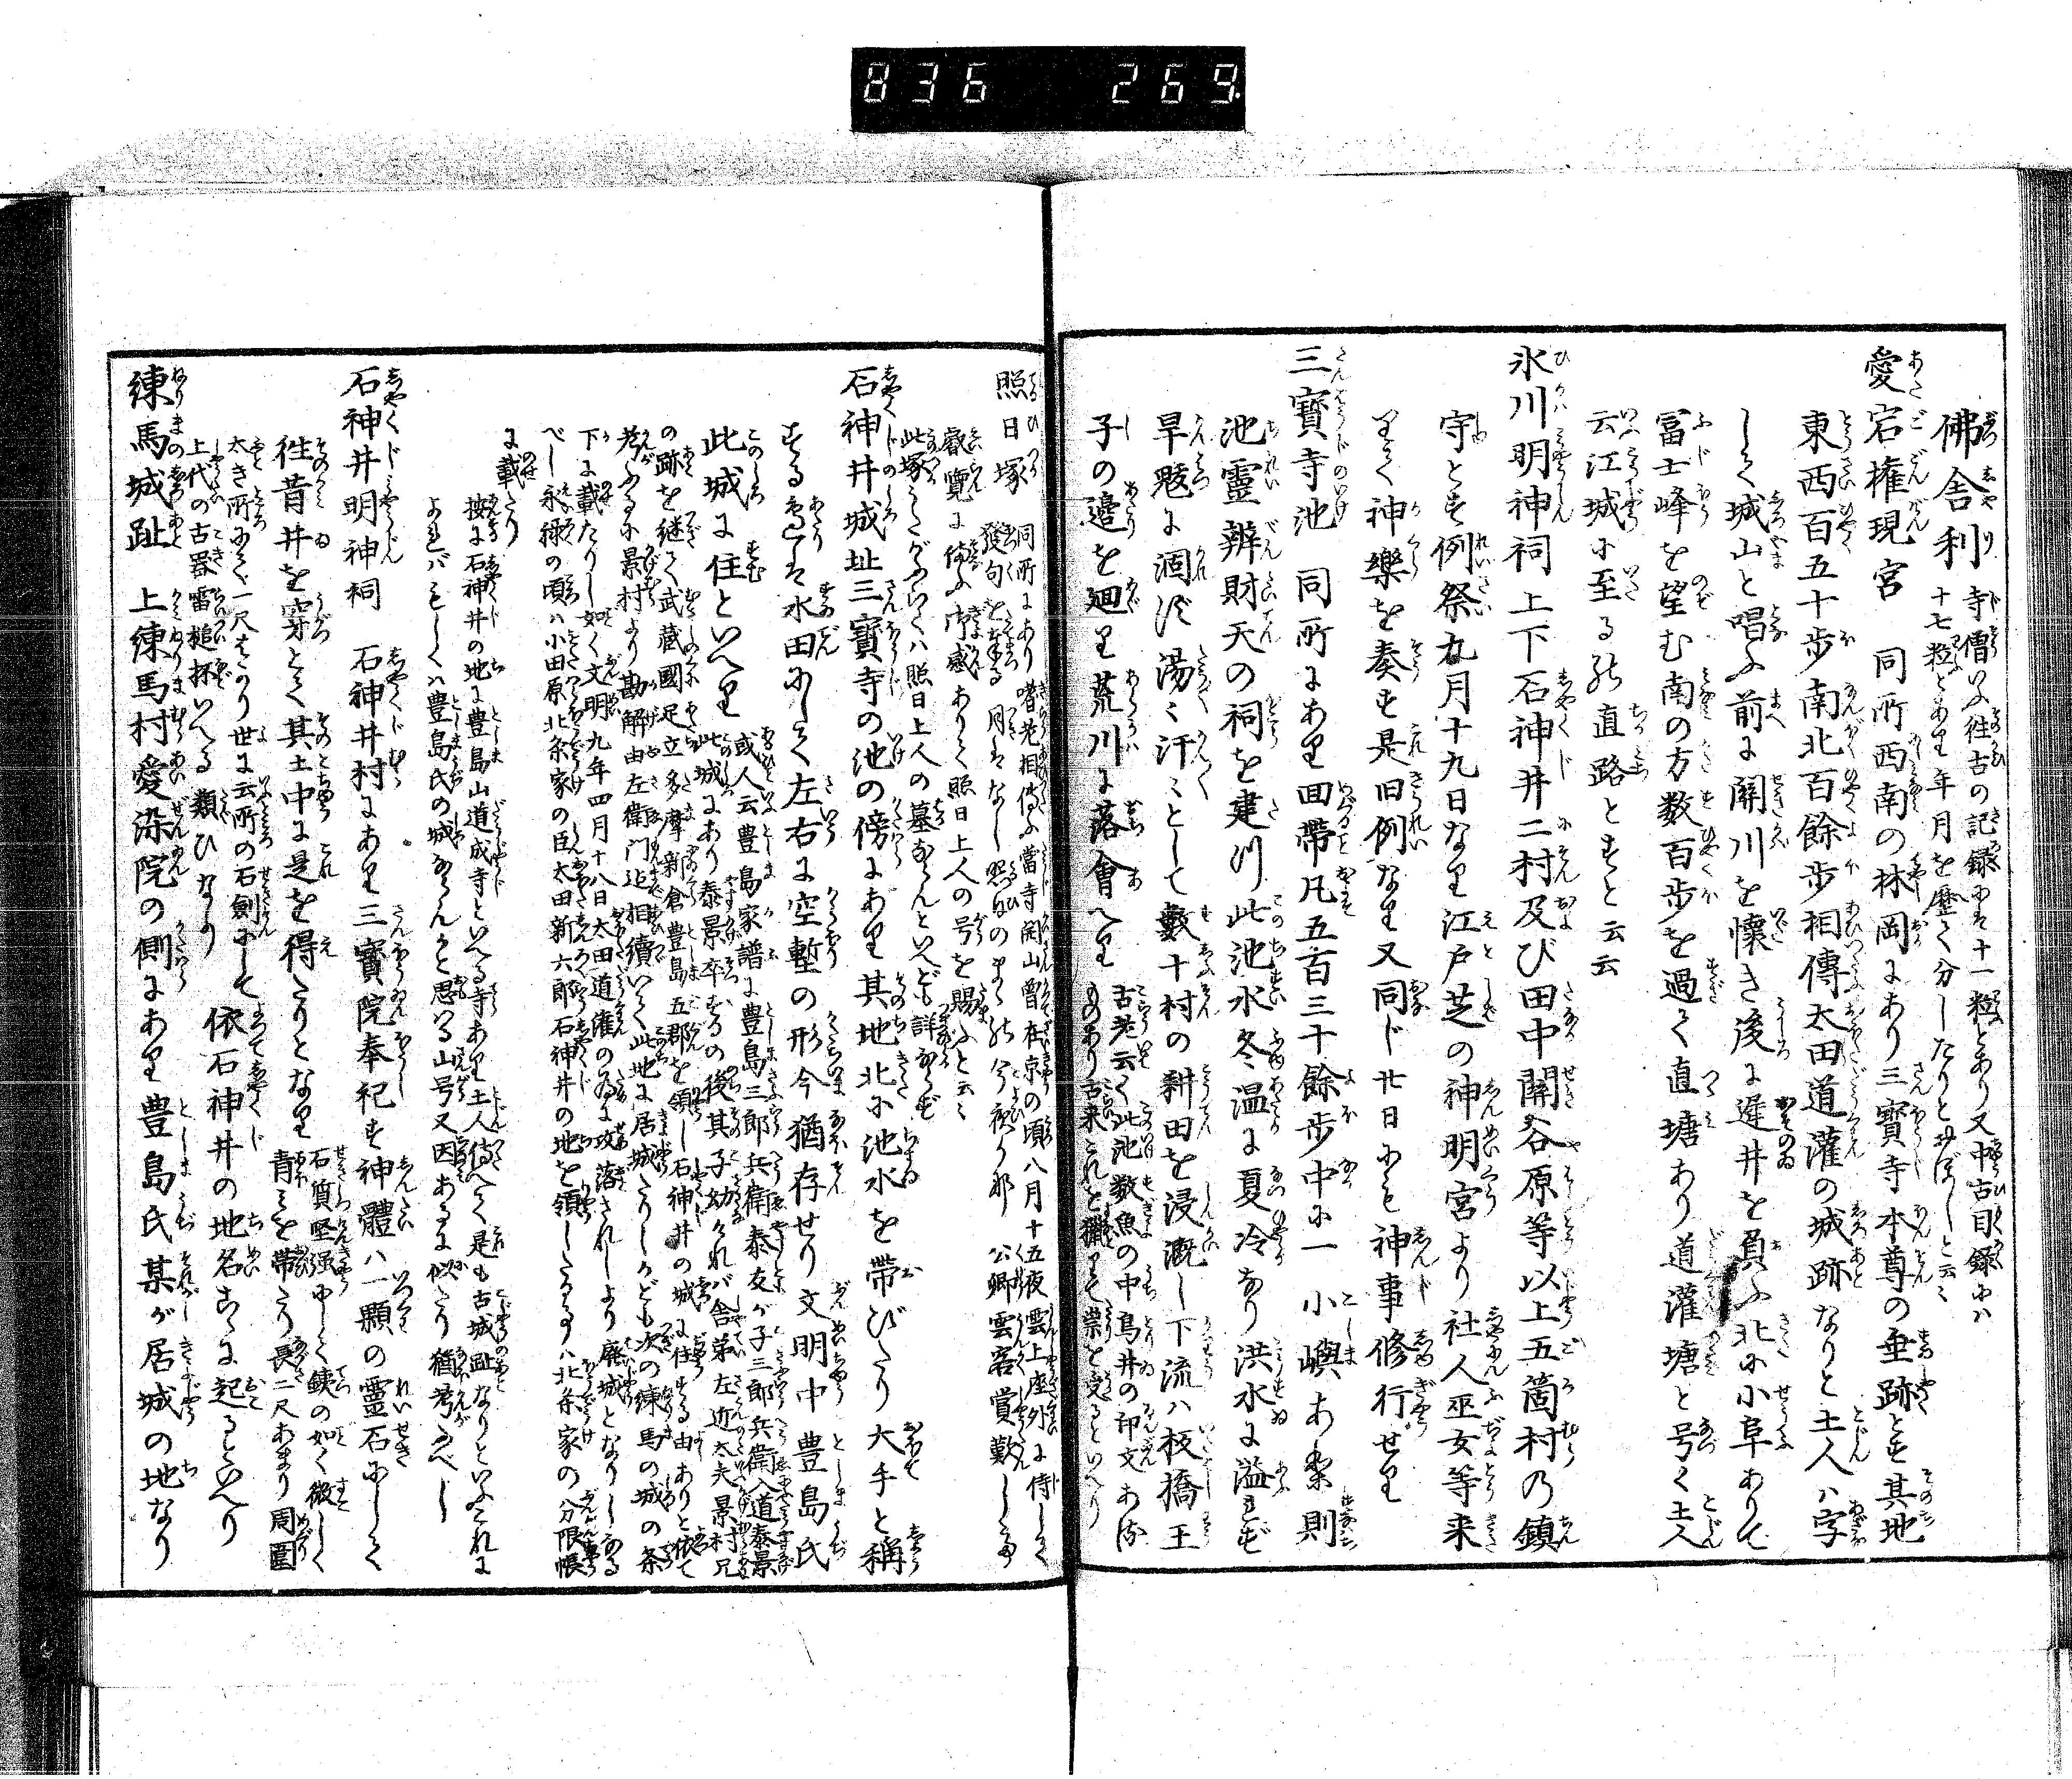 836 269
佛舎利 寺僧いふ往古の記録にハ十一粒とあり又中古目録にハ
十七粒とあり年月を歴て分したりとおぼしと云々
愛宕権現宮 同所西南の林岡にあり三寳寺本尊の垂跡とす其地
東西百五十歩南北百餘歩相傳太田道灌の城跡なりと土人ハ字
して城山と唱ふ前に關川を懐き後に遅井を負ふ北に小阜ありて
冨士峰を望む南の方数百歩を過て直塘あり道灌塘と号く土人
云江城に至るの直路とすと云云
氷川明神祠 上下石神井二村及び田中關谷原等以上五箇村の鎮
守とす例祭九月十九日なり江戸芝の神明宮より社人巫女等来
りて神樂を奏す是旧例なり又同じ廿日にも神事修行せり
三寳寺池 同所にあり回帶凡五百三十餘歩中に一小嶼あり則
池靈辨財天の祠を建つ此池水冬温に夏冷なり洪水に溢れず
旱魃に涸れず湯々汗々として數十村の耕田を浸漑し下流ハ板橋王
子の邉を廻り荒川に落會へり 古老云く此池数魚の中鳥井の印文ある
ものあり古来これを獵して祟を受るといへり
照日塚 同所にあり 嗜老相傳ふ當寺開山曽在京の頃八月十五夜雲上座外に侍して
發句を奉る 月はなし照日のまゝの今夜か那 公卿雲客賞歎し
叡覽に備ふ御感ありて照日上人の号を賜ふと云々
此塚うたがふらくハ照日上人の墓ならんといへども詳ならず
石神井城址 三寳寺の池の傍にあり其地北に池水を帶びたり大手と稱
する邉は水田にして左右に空塹の形今猶存せり文明中豊島氏
此城に住といへり 或人云豊島家譜に豊島三郎兵衛泰友が子三郎兵衛入道泰景
此城にあり泰景卒するの後其子幼ければ舎弟左近大夫景村兄
の跡を継て武蔵國足立多摩新倉豊島五郡を領し石神井の城に住する由ありと依て
考ふるに景村より勘解由左衛門迄相續いて此地に居城たりしかども次の練馬の城の条
下に載たりし如く文明九年四月十八日太田道灌の為に攻落されしより廢城となりしなる
べし永禄の頃ハ小田原北条家の臣太田新六郎石神井の地を領したる事ハ北条家の分限帳
に載たり
按に石神井の地に豊島山道成寺といへる寺あり土人傳へて是も古城趾なりといふこれに
よれバもしくハ豊島氏の城ならんかと思はる山号又因あるに似たり猶考ふべし
石神井明神祠 石神井村にあり三寳院奉祀す神體ハ一顆の靈石にして
徃昔井を穿とて其土中に是を得たりとなり 石質堅強にして銕の如く微しく
青みを帶たり長二尺あまり周圍
太き所にて一尺はかり世に云所の石劍にして
上代の古器雷槌抔いへる類ひなり 依石神井の地名こゝに起るといへり
練馬城趾 上練馬村愛染院の側にあり豊島氏某が居城の地なり